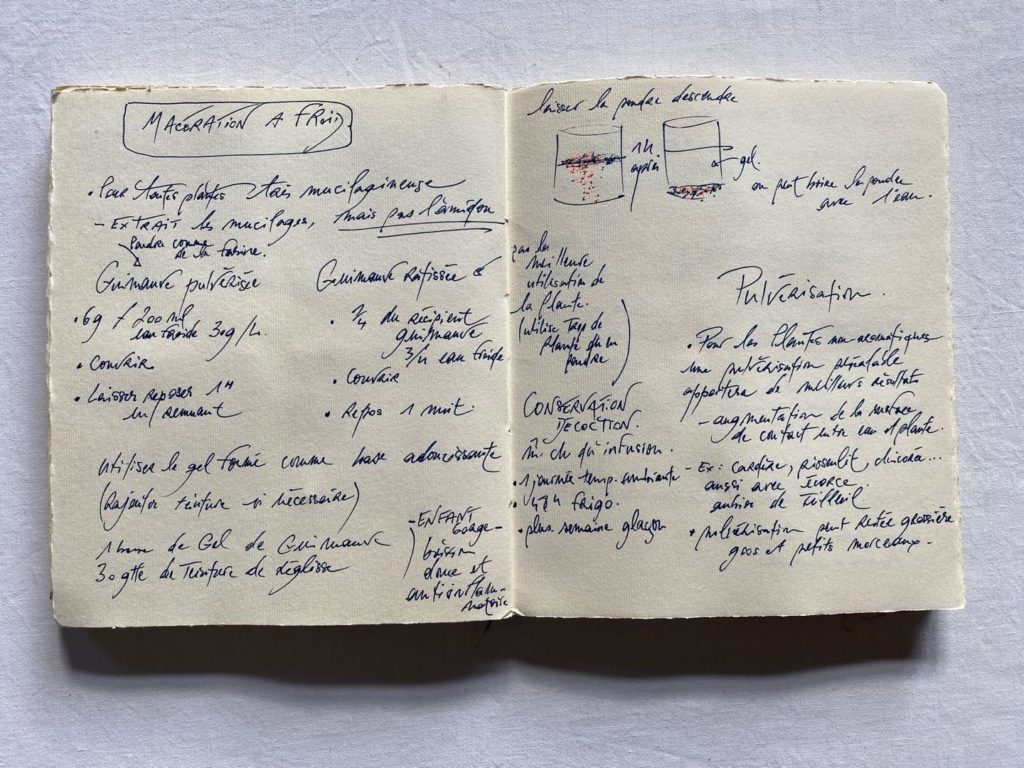 MACERATION A FROID
• Pour toutes plantes très mucilagineuse
- EXTRAIT les mucilages, mais pas l'amidon
Poudre comme
de la farine.
Guimauve pulvérisée
• 6g / 200 ml
eau froide 30g/L.
• Couvrir
• Laisser reposer 1H
en remuant
Guimauve Ratissée
• 1/4 du récipient
guimauve
3/4 eau froide
• Couvrir
• Repos 1 nuit.
utiliser le gel formé comme base adoucissante
(Rajouter teinture si nécessaire)
de Gel de Guimauve
30 gtte de Teinture de Réglisse
- ENFANT
boisson
douce et
antiinflam-
matoire
laisser la poudre descendre
1H
après
gel.
on peut boire la poudre
avec l'eau.
meilleure
utilisation de
la plante.
(utilise
plante
poudre)
CONSERVATION
DECOCTION.
infusion.
• 1 journée temp. ambiante
• 48H frigo.
• plus. semaine glaçon
Pulvérisation.
• Pour les Plantes non aromatiques
une pulvérisation préalable
apportera de meilleurs résultats
- augmentation de la surface
de contact entre eau et plante.
- Ex: cardère, pissenlit, chicorée...
aussi avec écorce
aubier de Tilleul
• pulvérisation peut rester grossière
gros et petits morceaux.